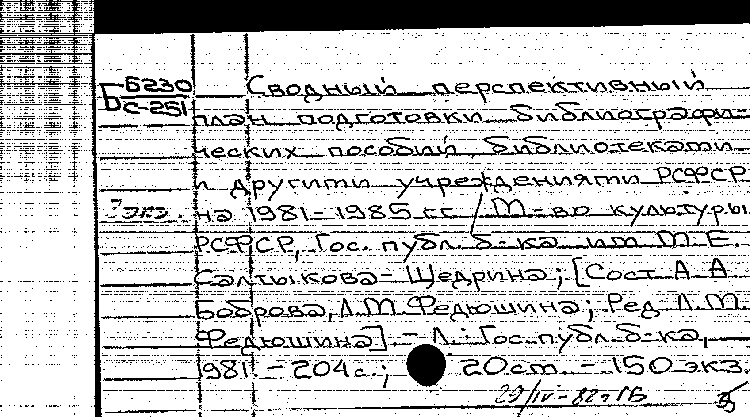 Б230 Сводный перспективный
С-251 план подготовки библиографи-
ческих пособий библиотеками
и другими учреждениями РСФСР
на 1981-1985 гг / М-во культуры
РСФСР, Гос. публ. б-ка им М.Е.
Салтыкова-Щедрина; [Сост А А
Боброва, Л.М.Федюшина; Ред Л.М.
Федюшина]. - Л.: Гос.публ.б-ка,
1981 - 204с.; 20см. - 150 экз.